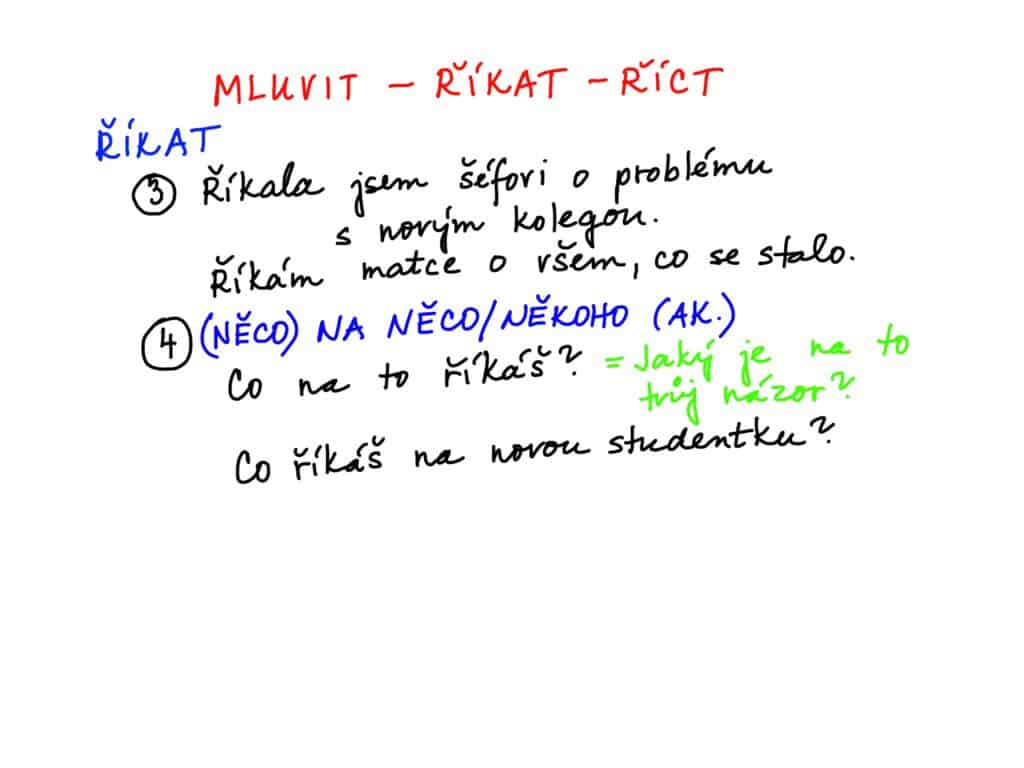 MLUVIT – ŘÍKAT – ŘÍCT
ŘÍKAT
③ Říkala jsem šéfovi o problému
s novým kolegou.
Říkám matce o všem, co se stalo.
④ (NĚCO) NA NĚCO/NĚKOHO (AK.)
Co na to říkáš? = Jaký je na to
tvůj názor?
Co říkáš na novou studentku?